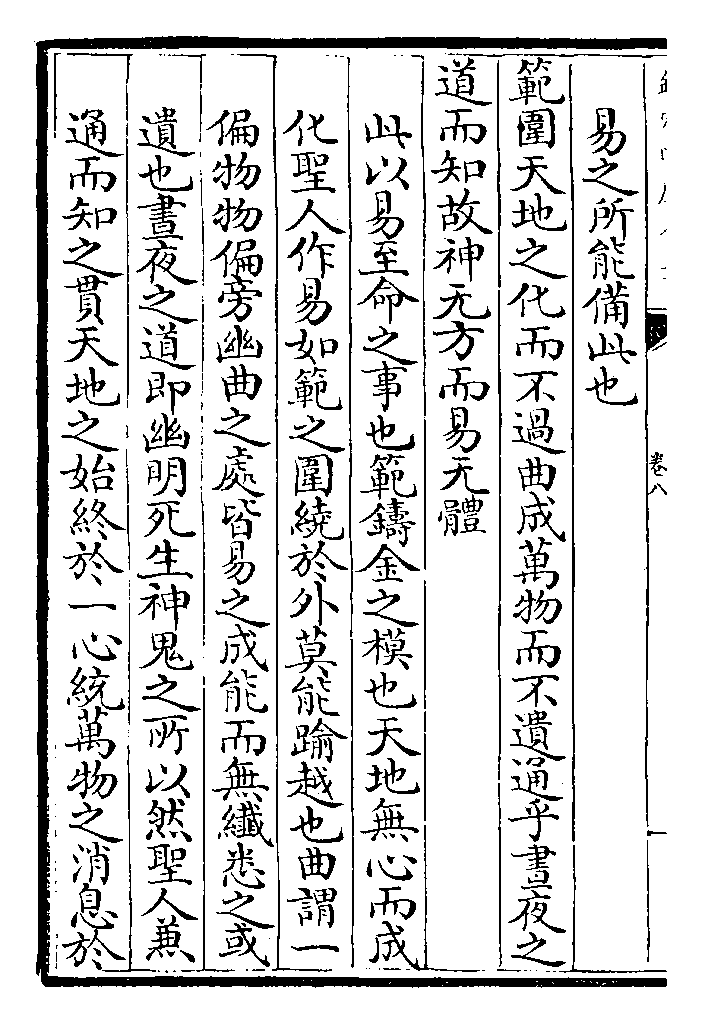 易之所能備此也
範圍天地之化而不過曲成萬物而不遺通乎晝夜之
道而知故神无方而易无體
此以易至命之事也範鑄金之模也天地無心而成
化聖人作易如範之圍繞於外莫能踰越也曲謂一
偏物物偏旁幽曲之處皆易之成能而無纖悉之或
遺也晝夜之道即幽明死生神鬼之所以然聖人兼
通而知之貫天地之始終於一心統萬物之消息於
卷八